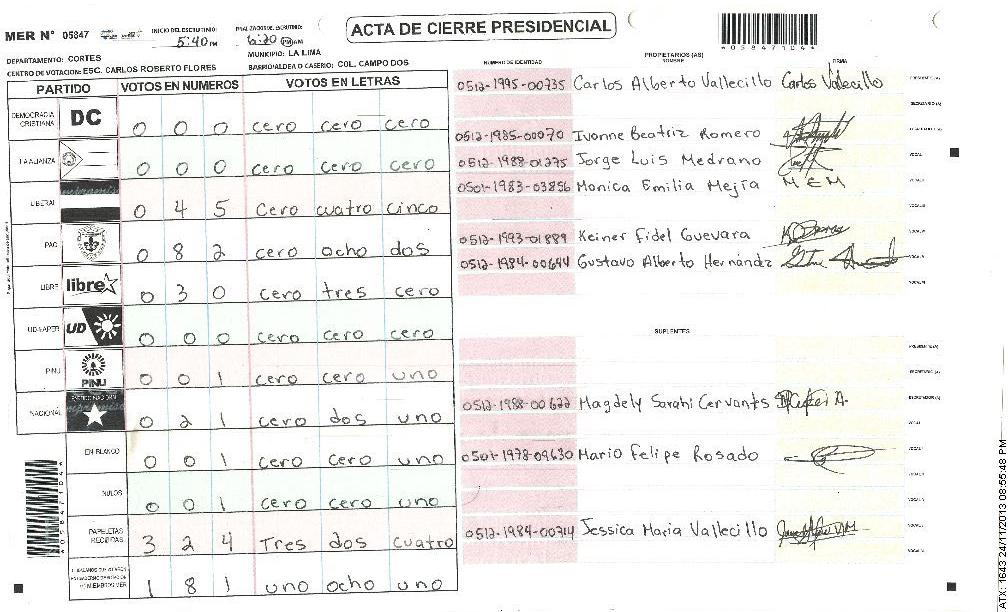 ACTA DE CIERRE PRESIDENCIAL
MER N° 05847
INICIO DEL ESCRUTINIO: 5:40 PM
6:20 PM AM
*058471044*
DEPARTAMENTO: CORTES
MUNICIPIO: LA LIMA
CENTRO DE VOTACION: ESC. CARLOS ROBERTO FLORES
BARRIO/ALDEA O CASERIO: COL. CAMPO DOS
PARTIDO VOTOS EN NUMEROS VOTOS EN LETRAS
DEMOCRACIA CRISTIANA DC 0 0 0 cero cero cero
LA ALIANZA 0 0 0 cero cero cero
LIBERAL 0 4 5 cero cuatro cinco
PAC 0 8 2 cero ocho dos
LIBRE libre 0 3 0 cero tres cero
UD-FAPER UD 0 0 0 cero cero cero
PINU PINU 0 0 1 cero cero uno
NACIONAL PARTIDO NACIONAL 0 2 1 cero dos uno
EN BLANCO 0 0 1 cero cero uno
NULOS 0 0 1 cero cero uno
PAPELETAS RECIBIDAS 3 2 4 Tres dos cuatro
1 8 1 uno ocho uno
PROPIETARIOS (AS)
NUMERO DE IDENTIDAD NOMBRE FIRMA
0512-1995-00735 Carlos Alberto Vallecillo Carlos Vallecillo PRESIDENTE (A)
SECRETARIO (A)
0512-1985-00070 Ivonne Beatriz Romero
0512-1988-01275 Jorge Luis Medrano
0501-1983-03856 Monica Emilia Mejía MEM
0512-1993-01889 Keiner Fidel Guevara
0512-1984-00644 Gustavo Alberto Hernández
SUPLENTES
PRESIDENTE (A)
SECRETARIO (A)
0512-1988-00622 Magdely Sarahi Cervantes
0501-1978-09630 Mario Felipe Rosado
0512-1984-00714 Jessica Maria Vallecillo
*058471044*
ATX: 1643 24/11/2013 08:55:48 PM